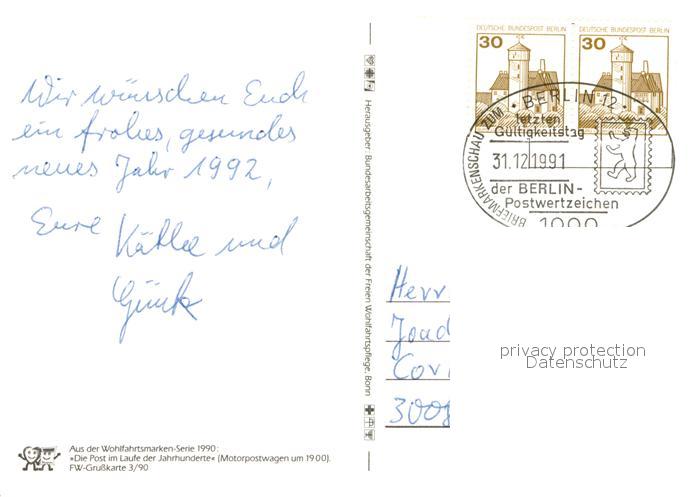 Wir wünschen Euch
ein frohes, gesundes
neues Jahr 1992,
Eure Käthe und
DEUTSCHE BUNDESPOST BERLIN
30
DEUTSCHE BUNDESPOST BERLIN
30
BRIEFMARKENSCHAU ZUM
BERLIN 12
letzten
Gültigkeitstag
31.12.1991
der BERLIN-
Postwertzeichen
1000
Herausgeber: Bundesarbeitsgemeinschaft der Freien Wohlfahrtspflege, Bonn
Herr
privacy protection
Datenschutz
Aus der Wohlfahrtsmarken-Serie 1990:
»Die Post im Laufe der Jahrhunderte« (Motorpostwagen um 1900).
FW-Grußkarte 3/90